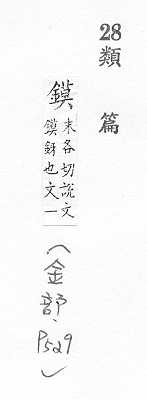 28類篇
鏌末各切説文鏌釾也文一
(金部、P529)